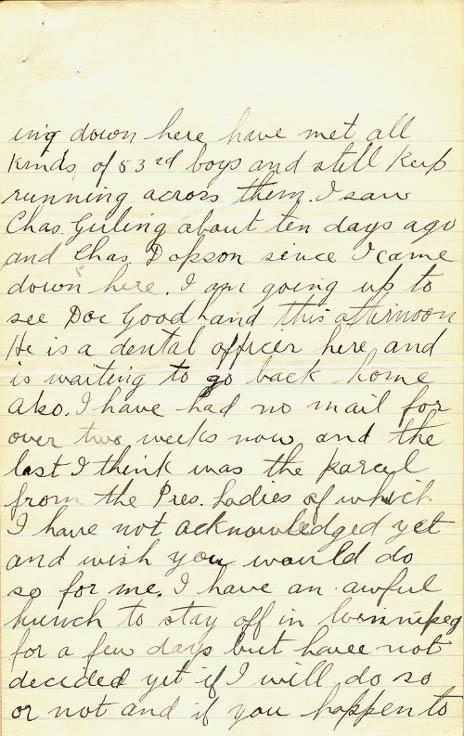 ing down here have met all
kinds of 53rd boys and still keep
running across them. I saw
Chas. Girling about ten days ago
and Chas. Dobson since I came
down here. I am going up to
see Doc Goodhand this afternoon
He is a dental officer here and
is waiting to go back home
also. I have had no mail for
over two weeks now and the
last I think was the parcel
from the Pres. Ladies of which
I have not acknowledged yet
and wish you would do
so for me. I have an awful
hunch to stay off in Winnipeg
for a few days but have not
decided yet if I will do so
or not and if you happen to